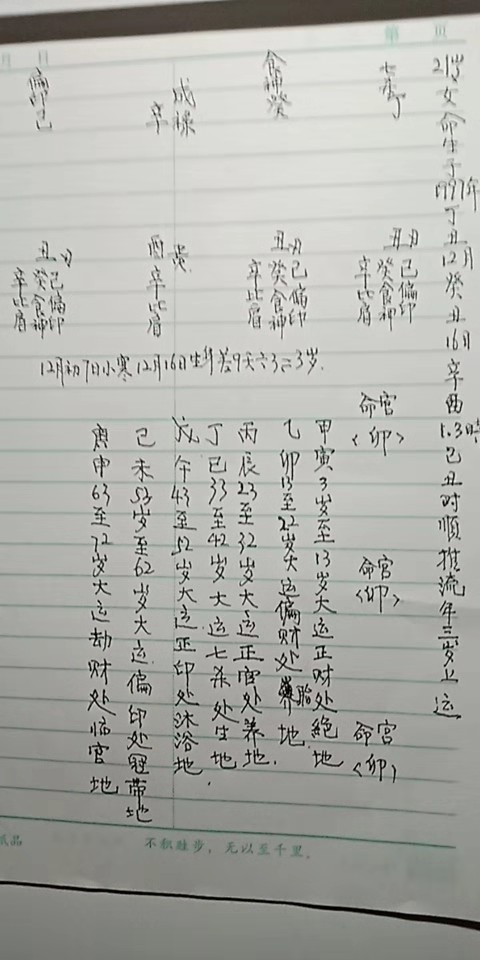 第 页
月 日
21岁女命生于1997年丁丑12月癸丑16日辛酉1.3時己丑时順推流年三岁上运
七杀丁
食神癸
成祿
辛
偏印己
丑
己偏印
癸食神
辛比肩
丑
己偏印
癸食神
辛比肩
酉
辛比肩
丑
己偏印
癸食神
辛比肩
12月初7日小寒12月16日生
命宫
<卯>
命宫
<卯>
命宫
<卯>
甲寅3岁至13岁大运正财处絕地
乙卯13至22岁大运偏财处胎地.
丙辰23至32岁大运正官处养地.
丁巳33至42岁大运七杀处生地.
戊午43至52岁大运正印处沐浴地
己未53岁至62岁大运偏印处冠带地
庚申63至72岁大运劫财处临官地
纸品
不积跬步，无以至千里。